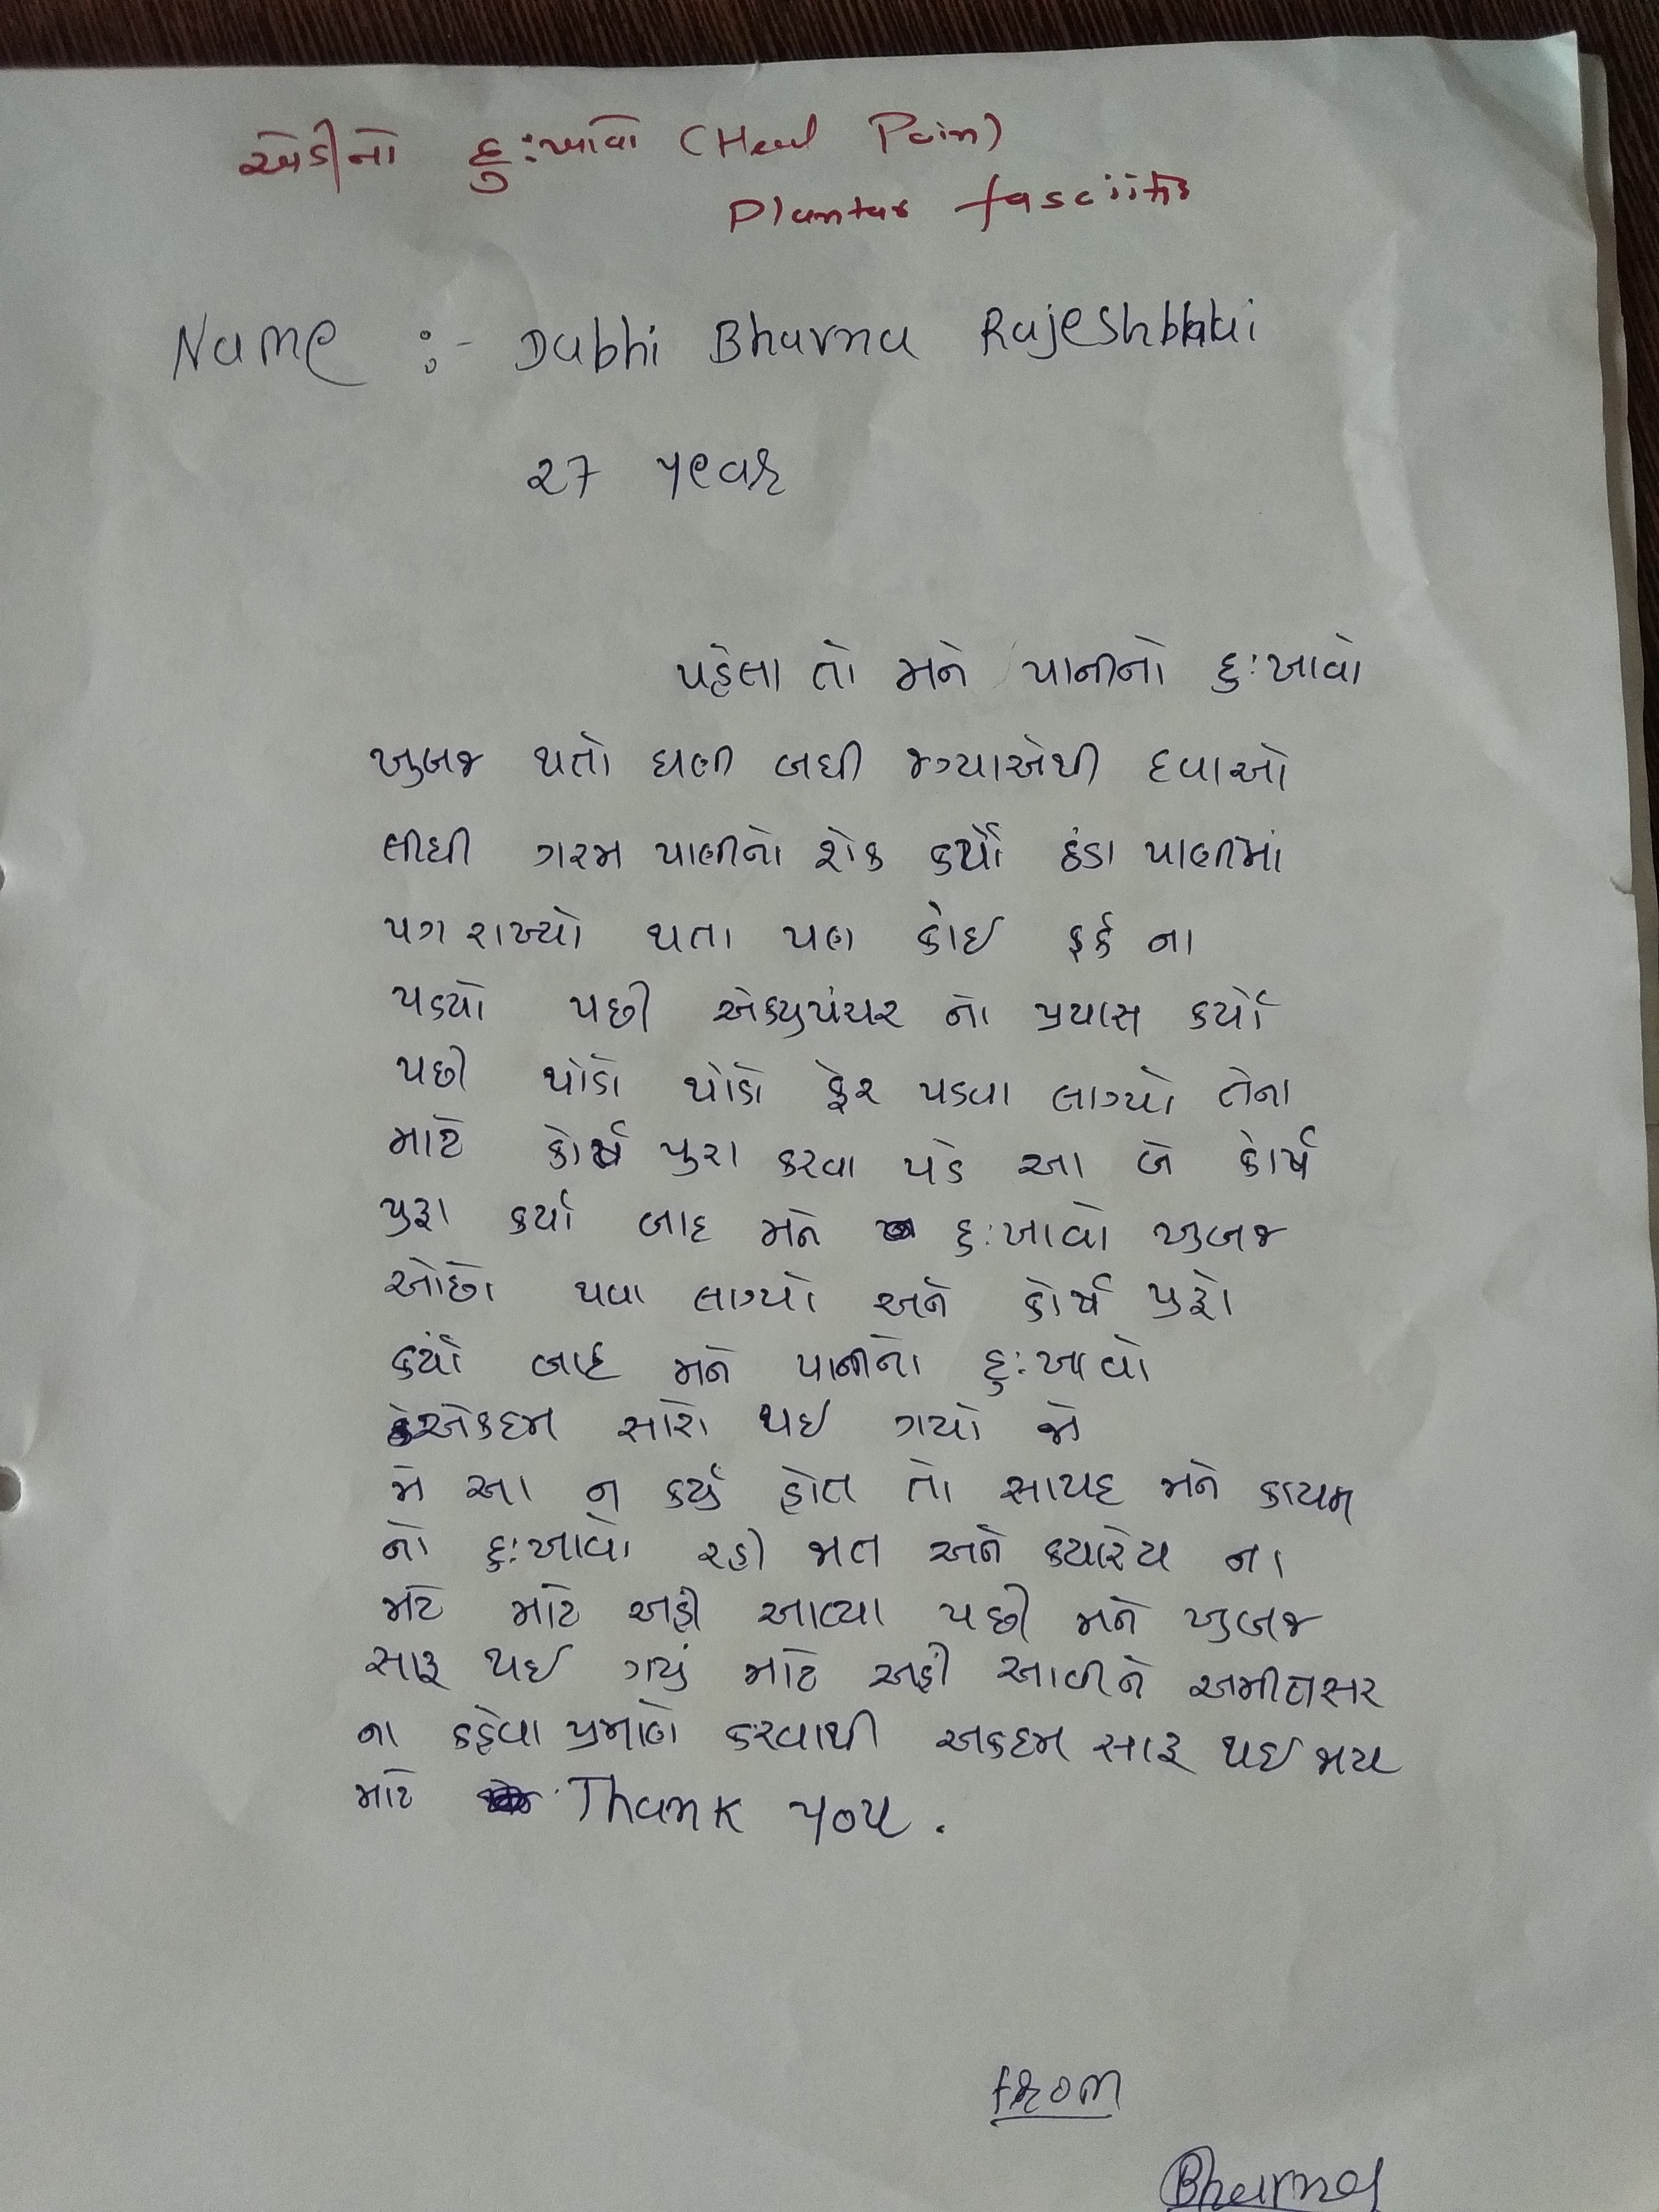 એડીનો દુઃખાવો (Heel Pain)
Plantar fasciitis
Name :- Dabhi Bhavna Rajeshbhai
27 year
પહેલા તો મને પાનીનો દુઃખાવો
ખુબજ થતો ઘણી બધી જગ્યાએથી દવાઓ
લીધી ગરમ પાણીનો શેક કર્યો ઠંડા પાણીમાં
પગ રાખ્યો થતા પણ કોઈ ફર્ક ના
પડ્યો પછી એક્યુપંચર નો પ્રયાસ કર્યો
પછી થોડો થોડો ફેર પડવા લાગ્યો તેના
માટે કોર્ષ પુરા કરવા પડે આ બે કોર્ષ
પુરા કર્યા બાદ મને દુઃખાવો ખુબજ
ઓછો થવા લાગ્યો અને કોર્ષ પુરો
કર્યો બાદ મને પાનીનો દુઃખાવો
એકદમ સારો થઈ ગયો જો
મે આ ન કર્યું હોત તો સાયદ મને કાયમ
નો દુઃખાવો રહી જાત અને ક્યારેય ના
મટે માટે અહી આવ્યા પછી મને ખુબજ
સારૂ થઈ ગયું માટે અહીં આવીને અમીતસર
ના કહેવા પ્રમાણે કરવાથી અકદમ સારૂ થઈ જાય
માટે Thank you.
from
Bhavna